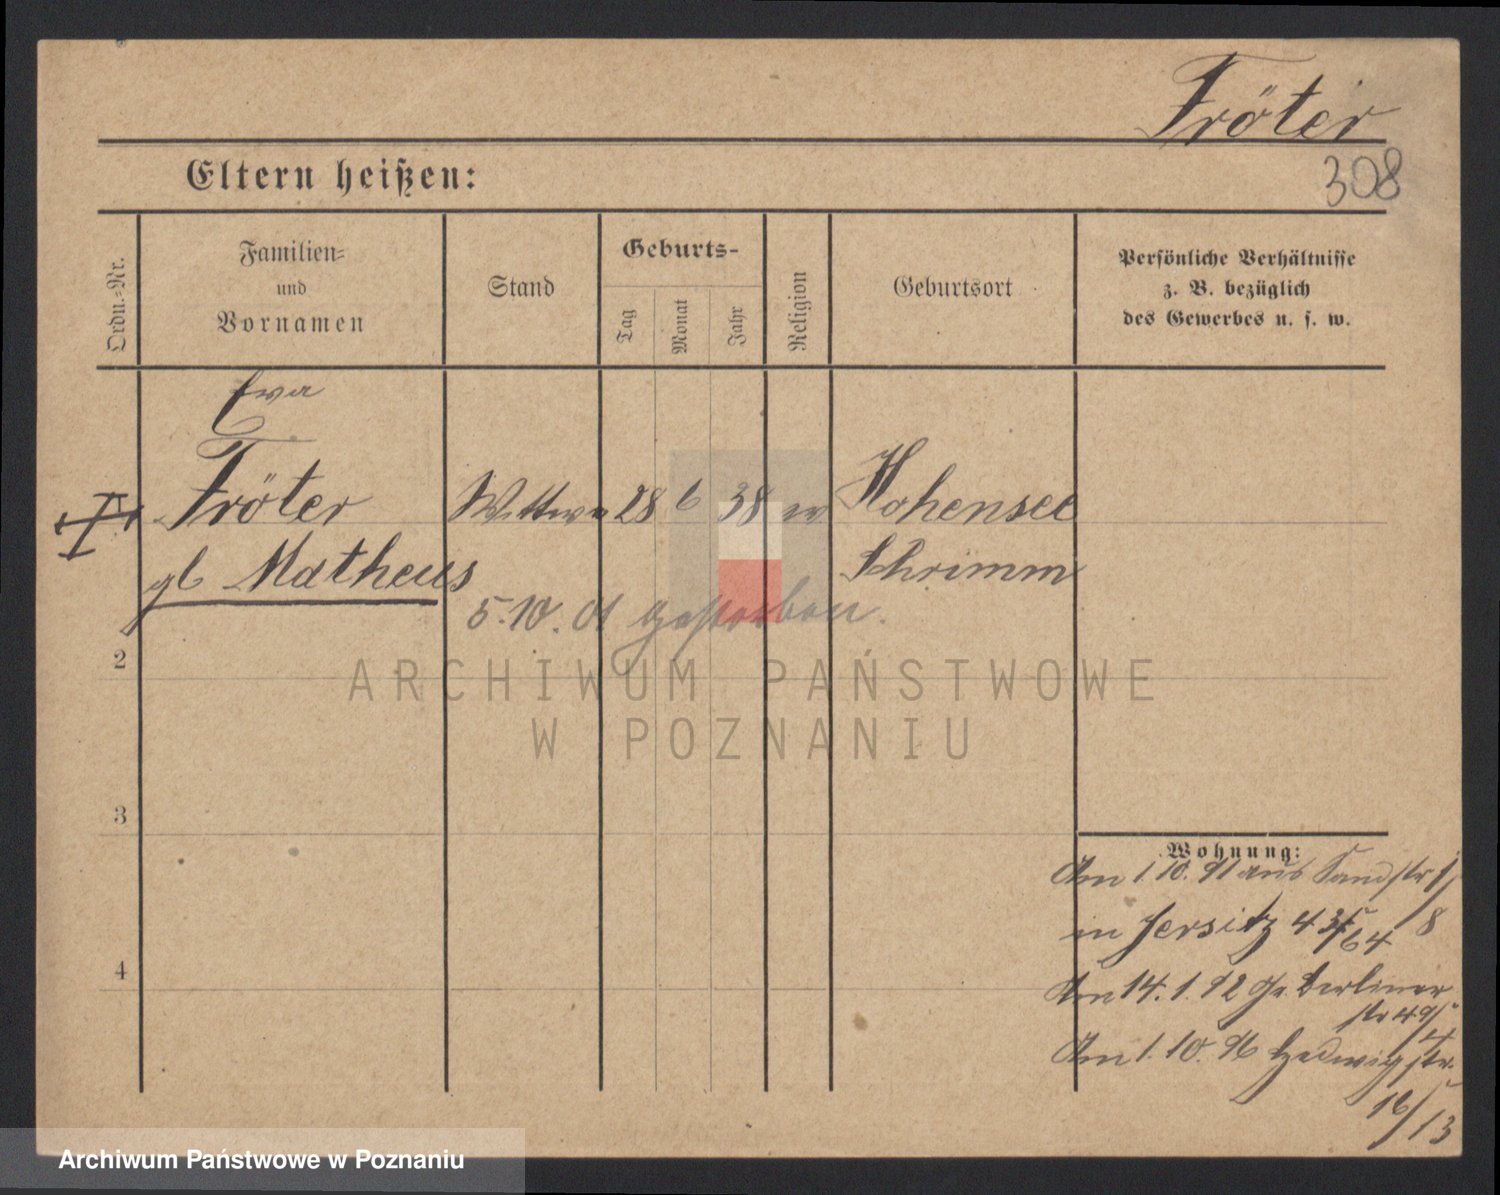 Fröter
308
Eltern heißen:
Ordn.-Nr.
Familien-
und
Vornamen
Stand
Geburts-
Tag
Monat
Jahr
Religion
Geburtsort
Persönliche Verhältnisse
z. B. bezüglich
des Gewerbes u. s. w.
Ewa
Fröter Wittwe 28 6 38 ev Hohensee
gb Matheus Schrimm
5.10.01 gestorben.
2
ARCHIWUM PAŃSTWOWE
W POZNANIU
3
Wohnung:
Am 1.10.91 aus Sandstr 1/8
in Jersitz
Am 14.1.92 Gr. Berliner
str 49/4
Am 1.10.96 Hedwigstr.
16/13
4
Archiwum Państwowe w Poznaniu